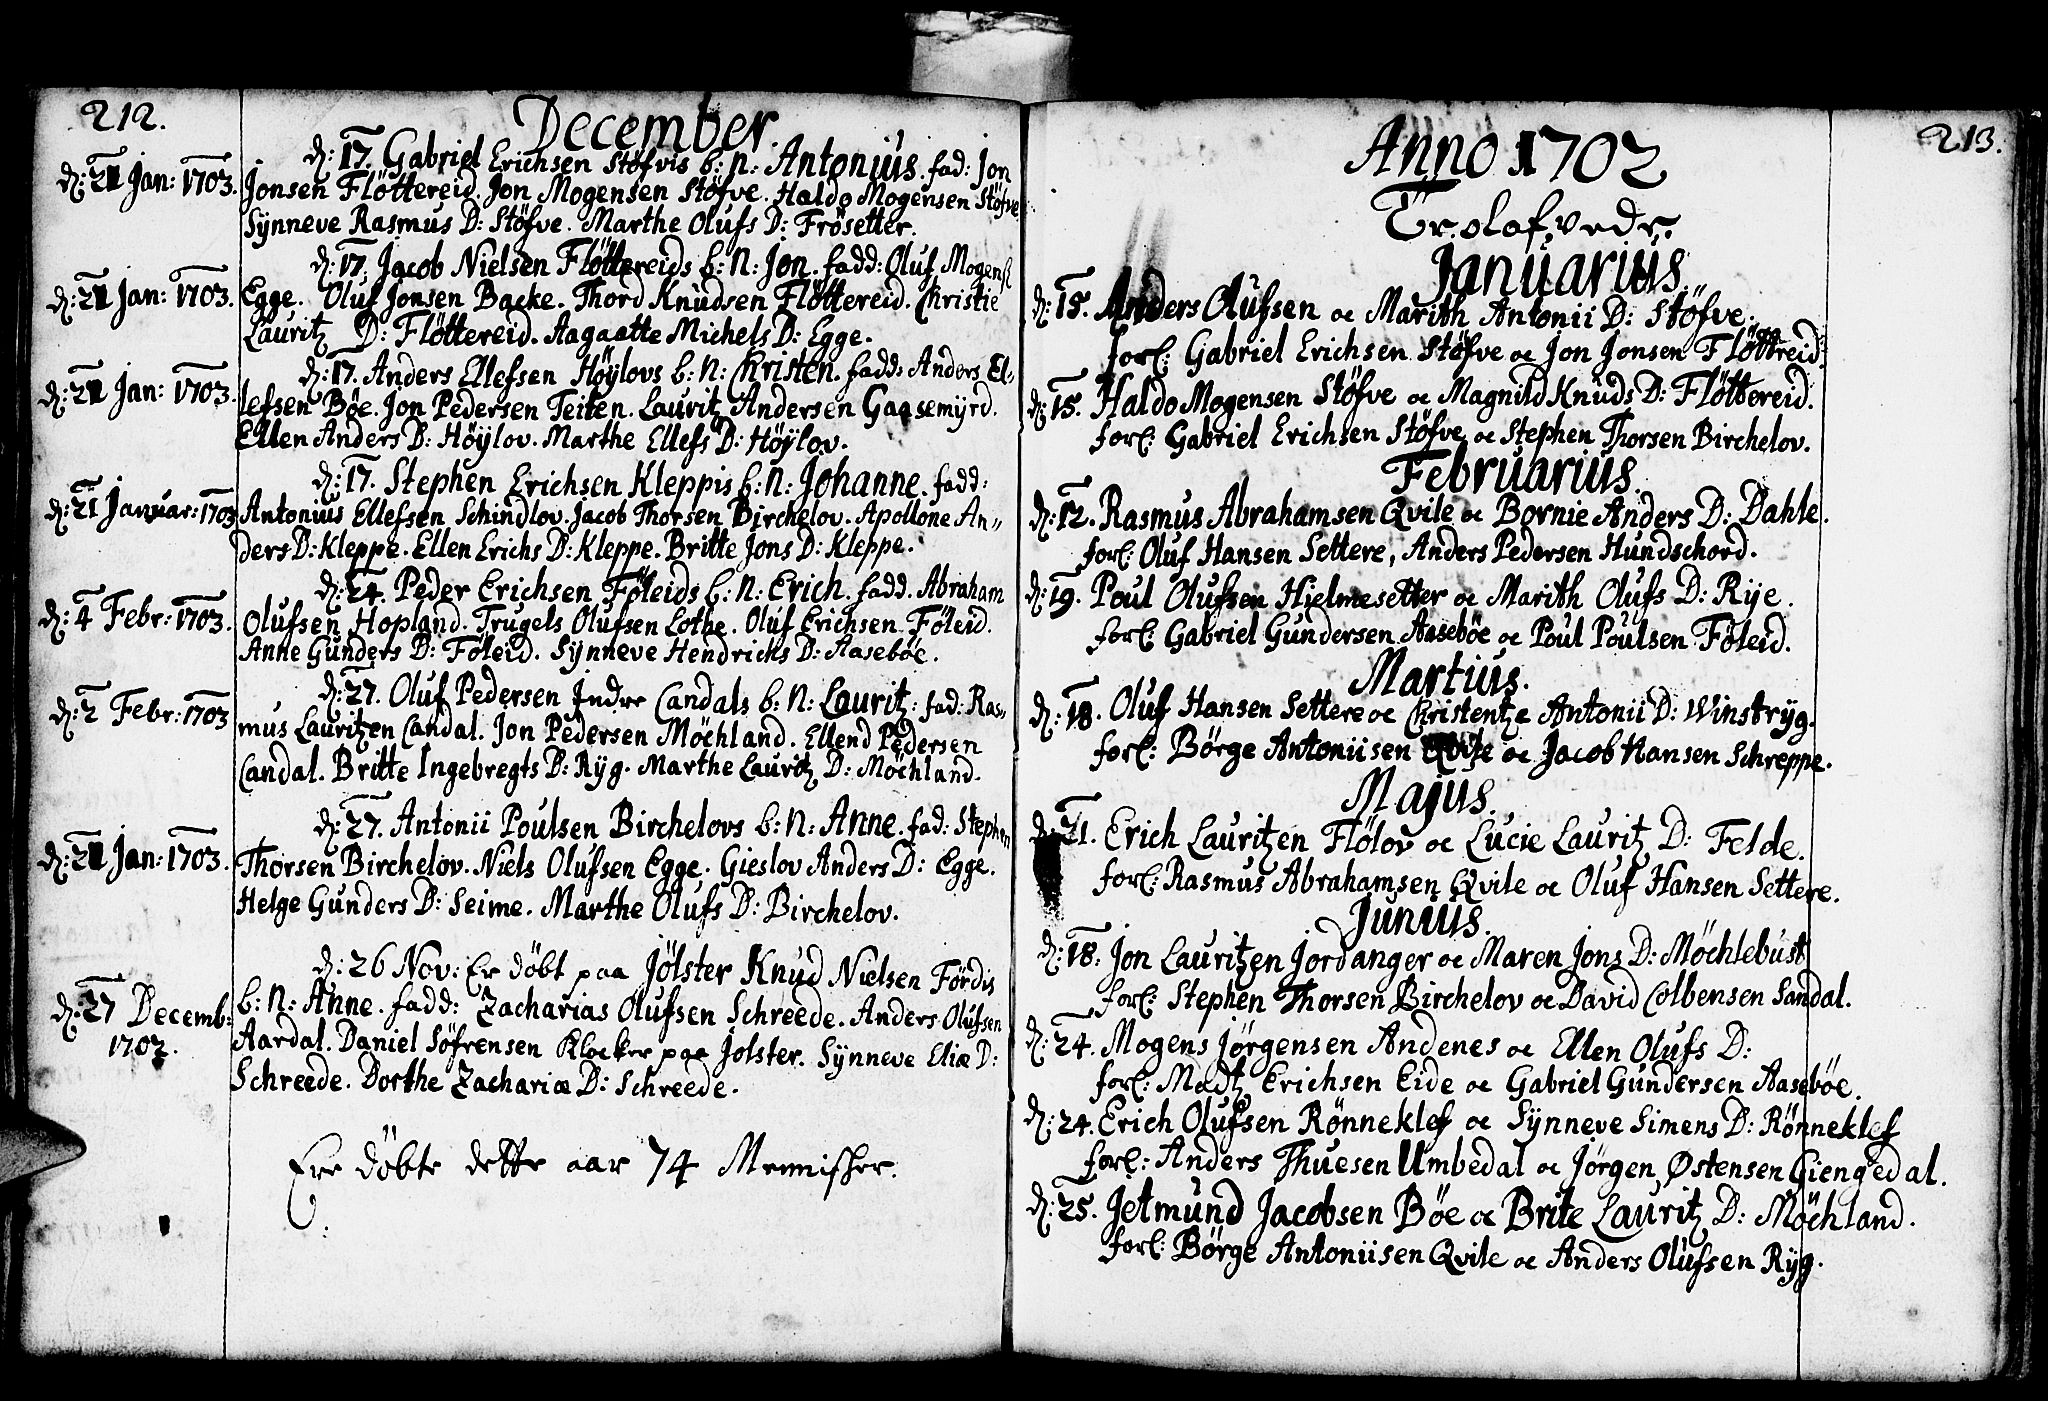 212.
December.
d: 21 Jan: 1703.
d: 17. Gabriel Erichsen Støfvis b: n: Antonius. fad: Jon
Jonsen Fløttereid. Jon Mogensen Støfve. Haldo Mogensen Støfve
Sÿnneve Rasmus D: Støfve. Marthe Olufs D: Frøsetter.
d: 21 Jan: 1703.
d: 17. Jacob Nielsen Fløttereids b: n: Jon. fadd: Oluf Mogens
Egge. Oluf Jonsen Backe. Thord Knudsen Fløttereid. Christie
Lauritz D: Fløttereid. Aagaatte Michels D: Egge.
d: 21 Jan: 1703.
d: 17. Anders Ellefsen Høÿlovs b: n: Christen. fadd: Anders El-
lefsen Bøe. Jon Pedersen Teiten. Lauritz Andersen Gaasemÿrd.
Ellen Anders D: Høÿlov. Marthe Ellefs D: Høÿlov.
d: 21 Januar: 1703
d: 17. Stephen Erichsen Kleppis b: n: Johanne. fadd:
Antonius Ellefsen Schindlov. Jacob Thorsen Birchelov. Apollone An-
ders D: Kleppe. Ellen Erichs D: Kleppe. Britte Jons D: Kleppe.
d: 4 Febr: 1703.
d: 24. Peder Erichsen Føleids b: n: Erich. fadd. Abraham
Olufsen Hopland. Trugels Olufsen Lothe. Oluf Erichsen Føleid.
Anne Gunders D: Føleid. Sÿnneve Hendrichs D: Aasebøe.
d: 2 Febr: 1703
d: 27. Oluf Pedersen Indre Candals b: n: Lauritz: fad: Ras-
mus Lauritzen Candal. Jon Pedersen Møchland. Ellend Pedersen
Candal. Britte Ingebregts D: Rÿg. Marthe Lauritz D: Møchland.
d: 21 Jan: 1703.
d: 27. Antonii Poulsen Birchelovs b: n: Anne. fad: Stephen
Thorsen Birchelov. Niels Olufsen Egge. Gieslov Anders D: Egge.
Helge Gunders D: Seime. Marthe Olufs D: Birchelov.
d: 27 Decemb:
1702.
d: 26 Nov: Er døbt paa Jølster Knud Nielsen Førdis
b: n: Anne. fadd: Zacharias Olufsen Schreede. Anders Olufsen
Aardal. Daniel Søfrensen Klocker paa Jølster. Sÿnneve Eliæ D:
Schreede. Dorthe Zachariæ D: Schreede.
Ere døbte dette aar 74 Mennischer.
213.
Anno 1702
Januarius.
d: 15. Anders Olufsen oc Marith Antonii D: Støfve.
forl: Gabriel Erichsen Støfve oc Jon Jonsen Fløttreid.
d: 15. Haldo Mogensen Støfve oc Magnild Knuds D: Fløttereid.
forl: Gabriel Erichsen Støfve oc Stephen Thorsen Birchelov.
Februarius.
d: 12. Rasmus Abrahamsen Qvile oc Bornie Anders D: Dahle.
forl: Oluf Hansen Settere, Anders Pedersen Hundschord.
d: 19. Poul Olufsen Hielmesetter oc Marith Olufs D: Rÿe.
forl: Gabriel Gundersen Aasebøe oc Poul Poulsen Føleid.
Martius.
d: 18. Oluf Hansen Settere oc Christentze Antonii D: Winstrÿg.
forl: Børge Antoniisen Qvile oc Jacob Hansen Schreppe.
Majus.
d: 21. Erich Lauritzen Flølov oc Lucie Lauritz D: Felde.
forl: Rasmus Abrahamsen Qvile oc Oluf Hansen Settere.
Junius.
d: 18. Jon Lauritzen Jordanger oc Maren Jons D: Møchlebust
forl: Stephen Thorsen Birchelov oc David Colbensen Sandal.
d: 24. Mogens Jørgensen Andenes oc Ellen Olufs D:
forl: Madtz Erichsen Eide oc Gabriel Gundersen Aasebøe.
d: 24. Erich Olufsen Rønneklef oc Sÿnneve Simens D: Rønneklef
forl: Anders Thuesen Umbedal oc Jørgen Østensen Giengedal.
d: 25. Jetmund Jacobsen Bøe oc Brite Lauritz D: Møchland.
forl: Børge Antoniisen Qvile oc Anders Olufsen Rÿg.